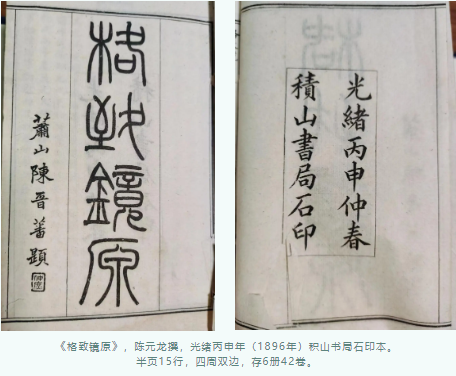 格致鏡原
蕭山陳晋蕃題
光緒丙申仲春
積山書局石印
《格致镜原》，陈元龙撰，光绪丙申年（1896年）积山书局石印本。
半页15行，四周双边，存6册42卷。